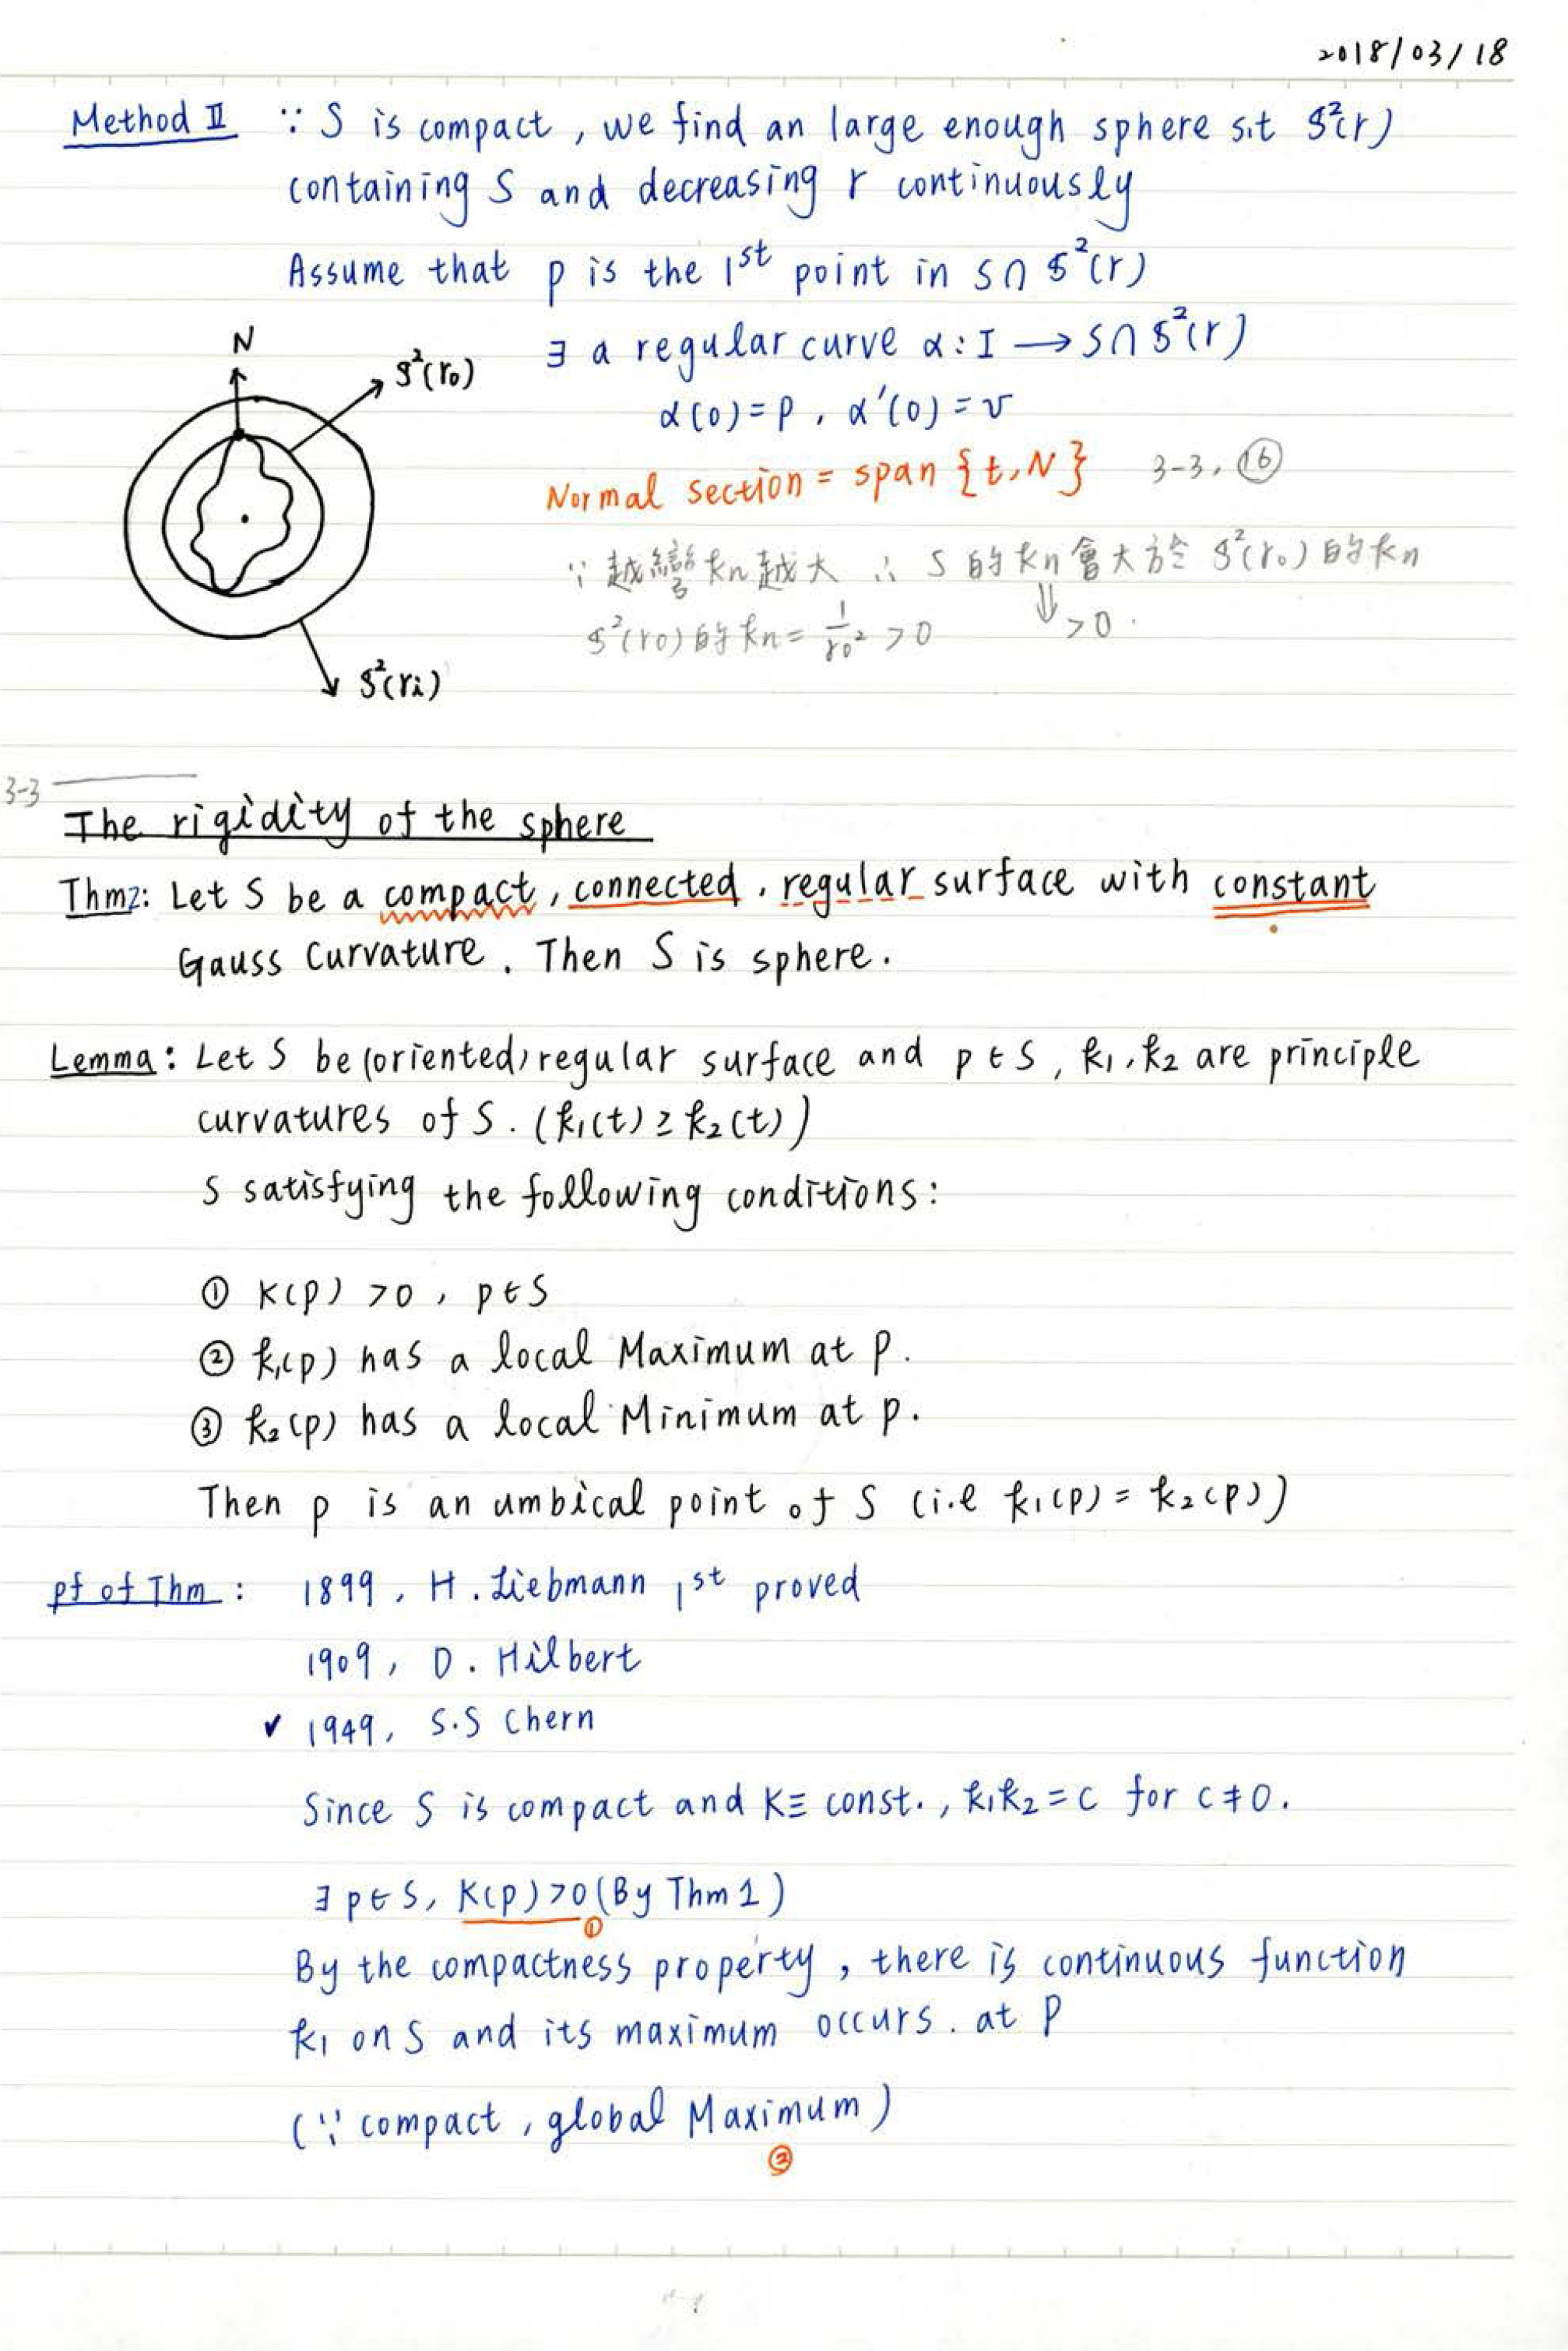 2018/03/18
Method Ⅱ ∵ S is compact, we find an large enough sphere s.t S²(r)
containing S and decreasing r continuously
Assume that p is the 1st point in S∩S²(r)
∃ a regular curve α: I → S∩S²(r)
α(0)=p, α'(0)=v
N
S²(r₀)
Normal section = span {t, N} 3-3, ⑯
∵ 越彎 kn 越大 ∴ S 的 kn 會大於 S²(r₀) 的 kn
S²(r₀) 的 kn = 1/r₀² > 0 ⇓ >0.
S²(ri)
3-3
The rigidity of the sphere
Thm2: Let S be a compact, connected, regular surface with constant
Gauss Curvature. Then S is sphere.
Lemma: Let S be (oriented) regular surface and p∈S, k₁, k₂ are principle
curvatures of S. (k₁(t) ≥ k₂(t))
S satisfying the following conditions:
① K(p) >0, p∈S
② k₁(p) has a local Maximum at p.
③ k₂(p) has a local Minimum at p.
Then p is an umbical point of S (i.e k₁(p) = k₂(p))
pf of Thm: 1899, H. Liebmann 1st proved
1909, D. Hilbert
✓ 1949, S.S Chern
Since S is compact and K≡ const., k₁k₂ = c for c≠0.
∃ p∈S, K(p)>0 (By Thm 1)
①
By the compactness property, there is continuous function
k₁ on S and its maximum occurs. at p
(∵ compact, global Maximum)
②